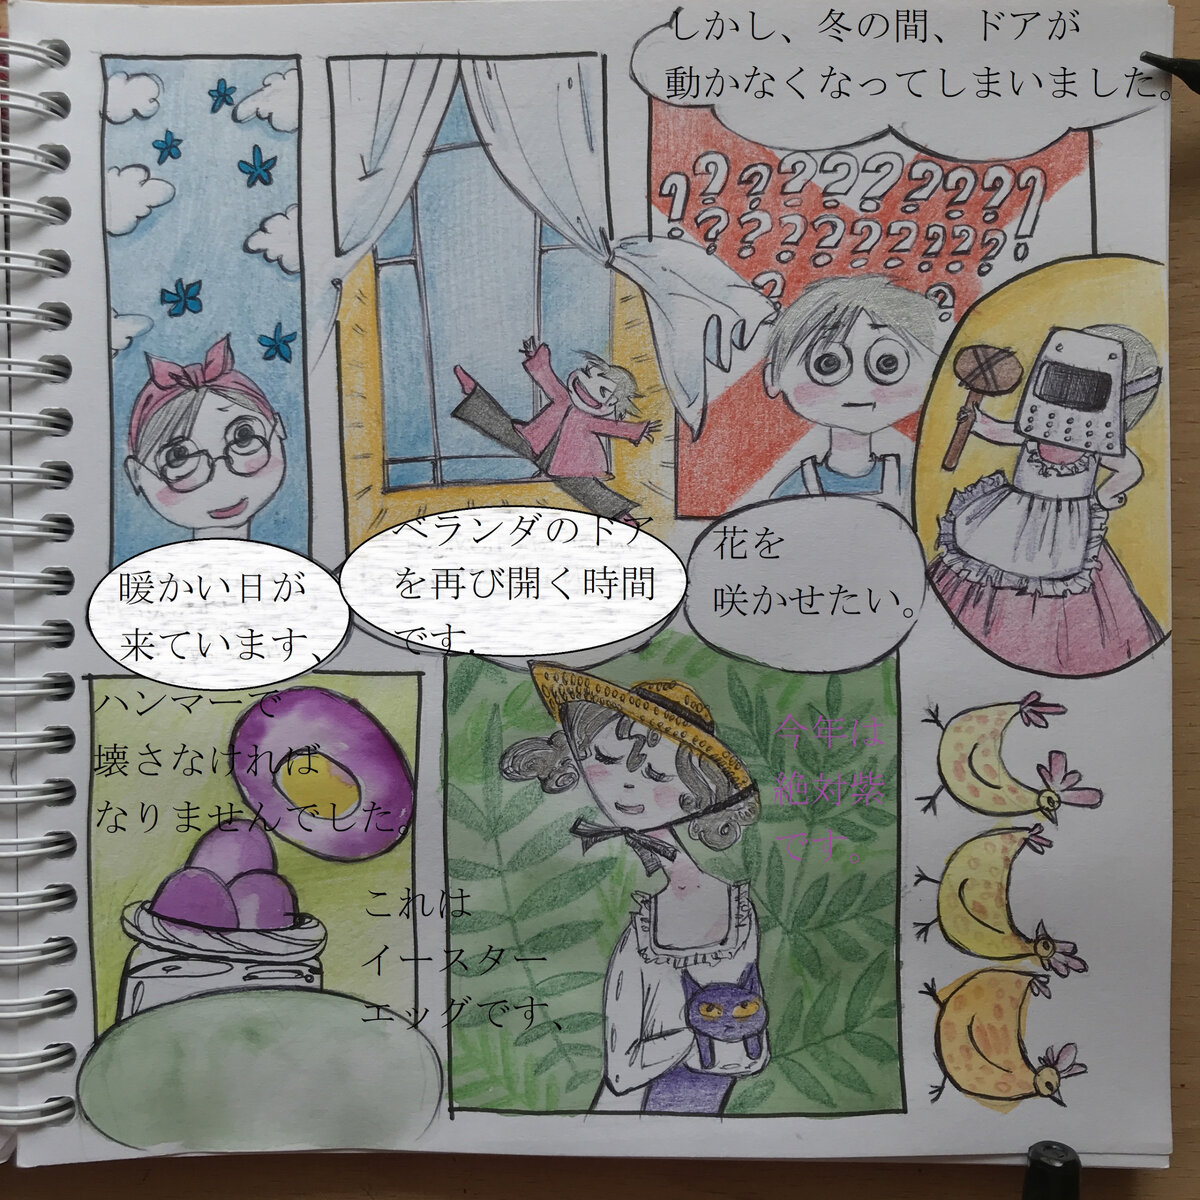 暖かい日が
来ています、
ベランダのドア
を再び開く時間
です.
しかし、冬の間、ドアが
動かなくなってしまいました。
花を
咲かせたい。
ハンマーで
壊さなければ
なりませんでした。
これは
イースター
エッグです、
今年は
絶対紫
です。